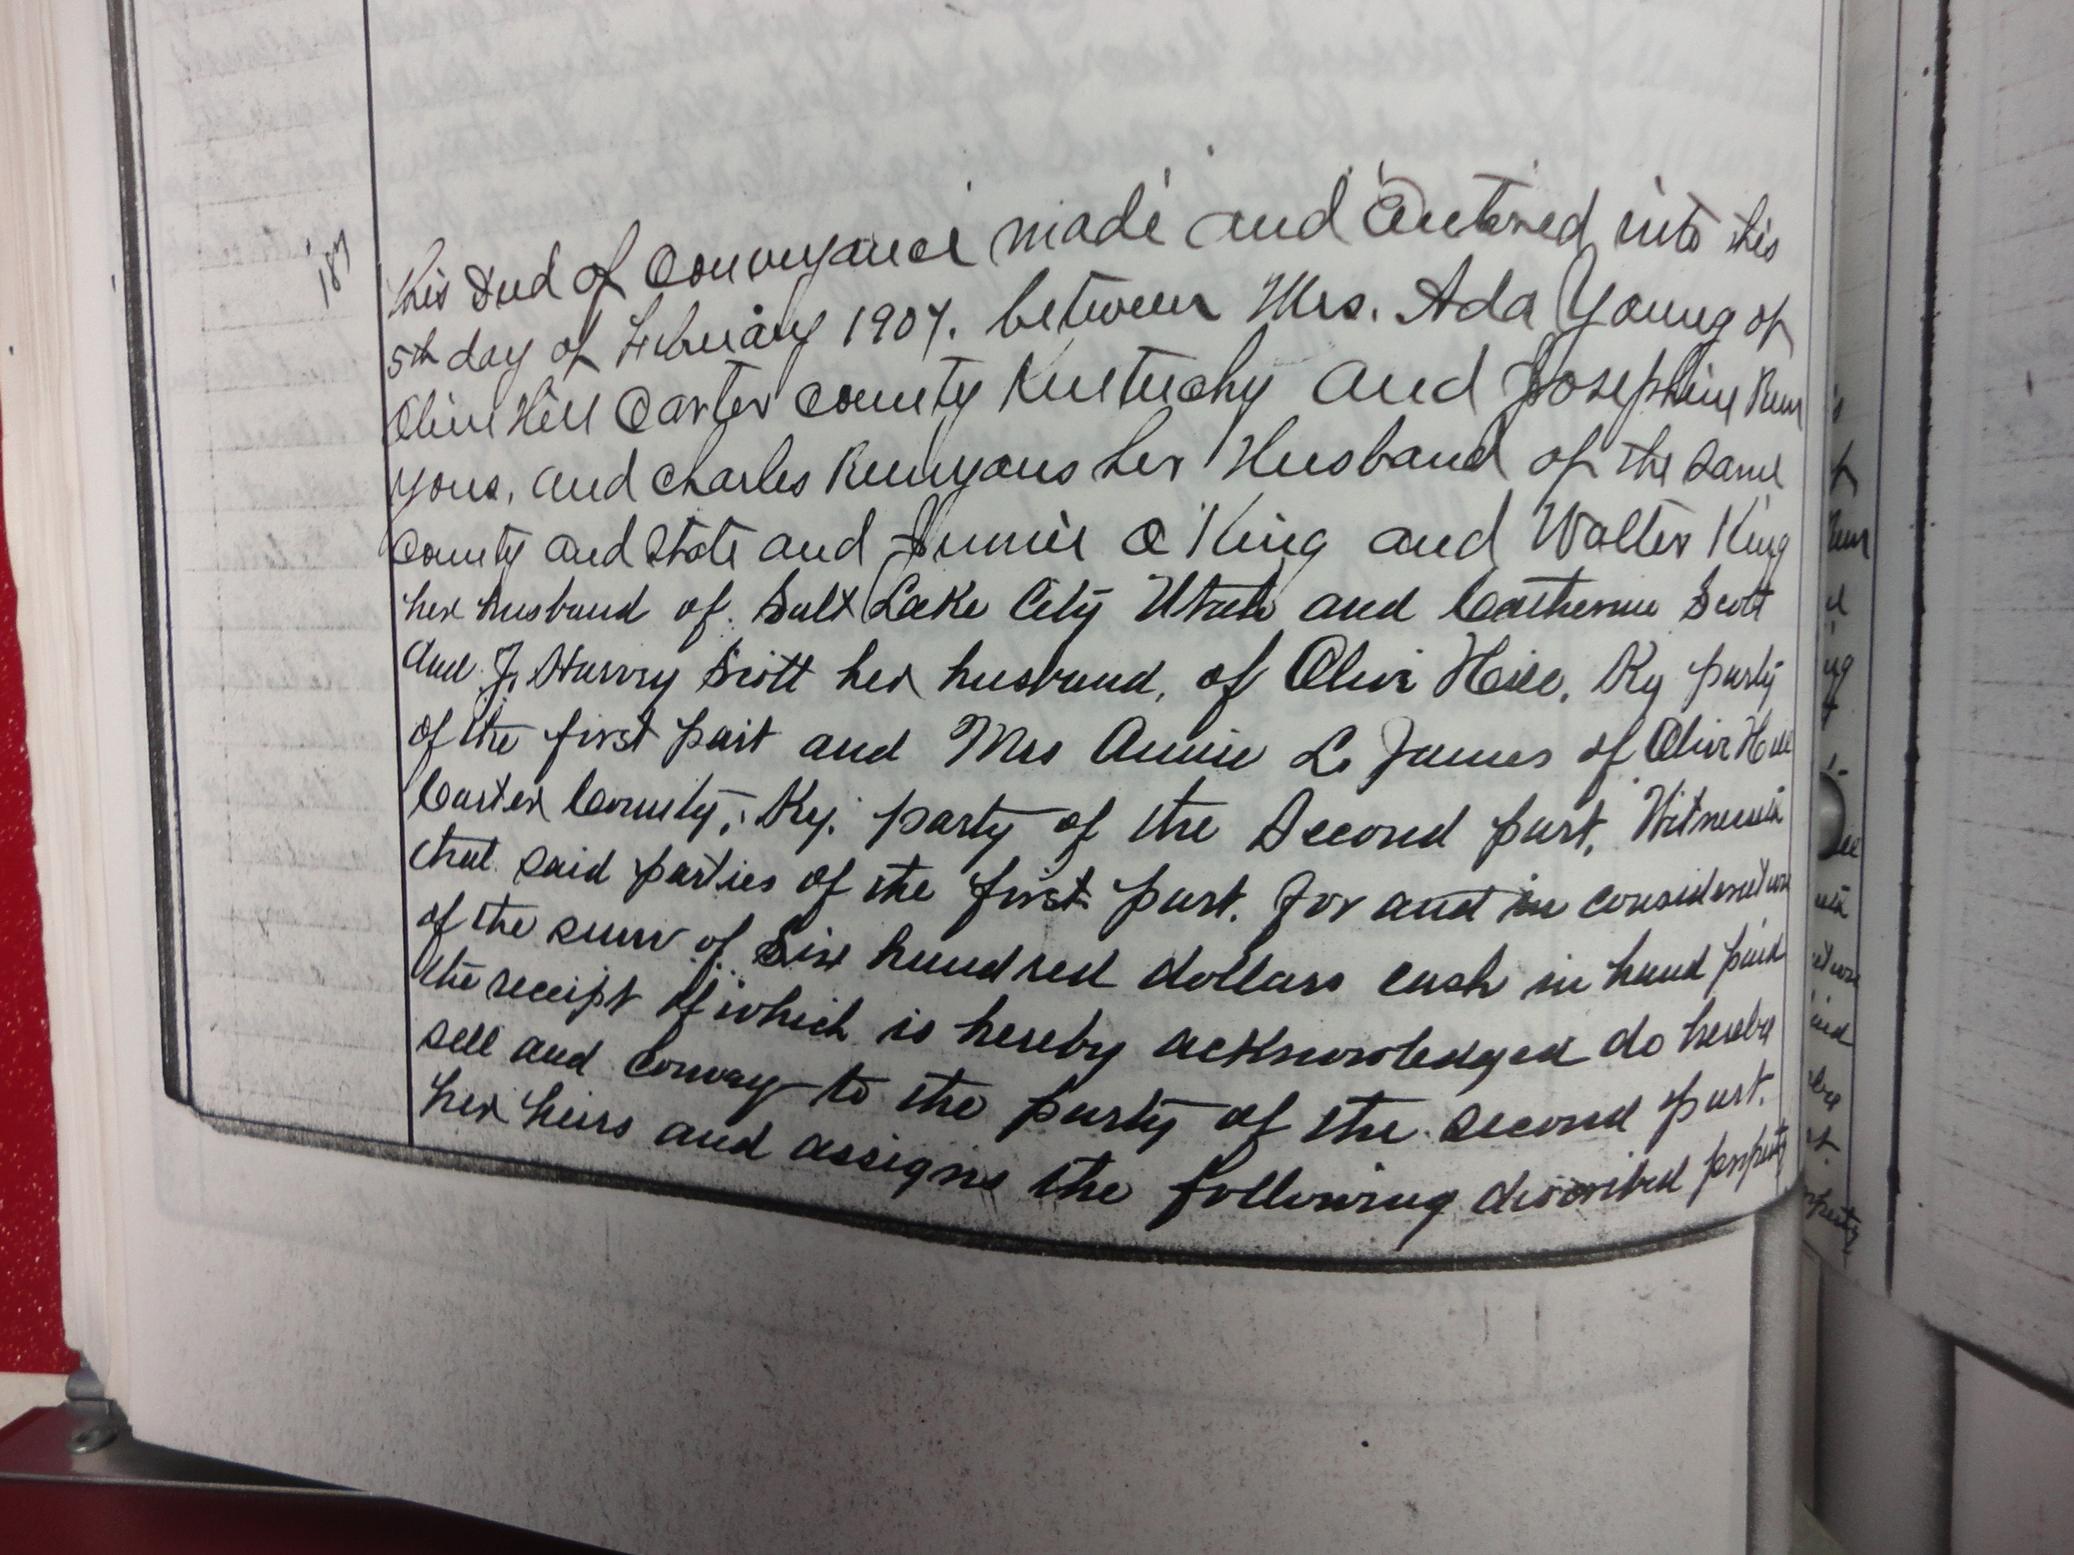 187
This Deed of Conveyance made and Entered into this
5th day of February 1907. between Mrs. Ada Young of
Olive Hill Carter County Kentucky and Josephine Run
yons, and Charles Runyons her Husband of the same
County and State and King and Walter King
her husband of. Salt Lake City Utah and Catherine Scott
and J. Harvey Scott her husband, of Olive Hill, Ky party
of the first part and Mrs Annie L. James of Olive Hill
Carter County, Ky. party of the Second part, Witnesseth
that said parties of the first part. for and in consideration
of the sum of Six hundred dollars cash in hand paid
the receipt of which is hereby acknowledged do hereby
sell and convey to the party of the second part.
her heirs and assigns the following described property